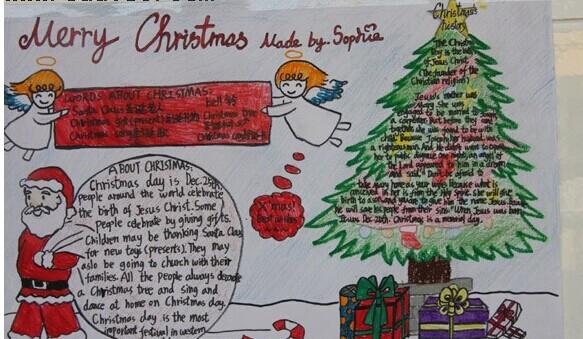 Merry Christmas Made by. Sophie
WORDS ABOUT CHRISTMAS:
Santa Claus 圣诞老人
bell 铃
Christmas gift (present)
Christmas tree
Christmas song 圣诞歌
Christmas
ABOUT CHRISTMAS:
Christmas day is Dec. 25th,
people around the world celebrate
the birth of Jesus Christ. Some
people celebrate by giving gifts.
Children may be thanking Santa Claus
for new toys (presents). They may
aslo be going to church with their
families. All the people always decorate
a Christmas tree and sing and
dance at home on Christmas day.
Christmas day is the most
important festival in western
X'mas!
Best wishes
Christmas
history
The Christmas
Day is the birth
of Jesus Christ
(the founder of the
Christian religion)
Jesus's mother was
Mary. She was
to be married to
a carpenter. But before they
she was found to be with
child. Because
a righteous man and he didn't want to
her to public disgrace one night, an angel of
appeared to him in a dream
and said, "Don't be afraid to
take Mary home as your wife, because what is
conceived in her is from the holy spirit. She will give
birth to a son, and you are to give him the name Jesus, because
he will save his people from their sins." When Jesus was born
Dec. 25th. Christmas is a memorial day.